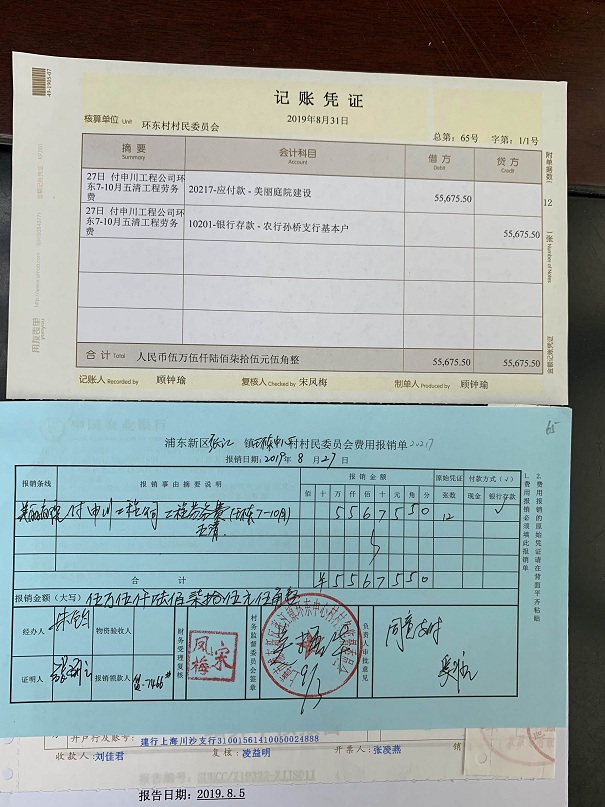 记账凭证
2019年8月31日
核算单位 Unit 环东村村民委员会
总第:65号 字第:1/1号
摘要 Summary 会计科目 Account 借方 Debit 贷方 Credit
27日 付申川工程公司环
东7-10月五清工程劳务
费
20217-应付款 - 美丽庭院建设 55,675.50
27日 付申川工程公司环
东7-10月五清工程劳务
费
10201-银行存款 - 农行孙桥支行基本户 55,675.50
合计 Total 人民币伍万伍仟陆佰柒拾伍元伍角整 55,675.50 55,675.50
记账人 Recorded by 顾钟瑜 复核人 Checked by 宋凤梅 制单人 Produced by 顾钟瑜
附单据数 12
65
浦东新区张江镇环东中心村村民委员会费用报销单 20217
报销日期:2019年8月27日
报销条线 报销事由摘要说明 报销金额 原始凭证 付款方式(√)
佰十万仟佰十元角分 张数 现金 银行存款
付申川工程公司 工程劳务费(环东7-10月) 5567550 12 √
五清
合计 ¥5567550
报销金额(大写) 伍万伍仟陆佰柒拾伍元伍角整
经办人 物资验收人 财务受理复核 村务监督委员会签章 负责人审批意见
凤宋
梅
同意支付
9/3
证明人 报销领款人
1.费用报销必须填此报销单
2.费用报销的原始凭证请在背面平齐粘贴
开户行及账号: 建行上海川沙支行31001561410050024888
收款人:刘佳君 复核:凌益明 开票人:张凌燕 销
报告日期:2019.8.5